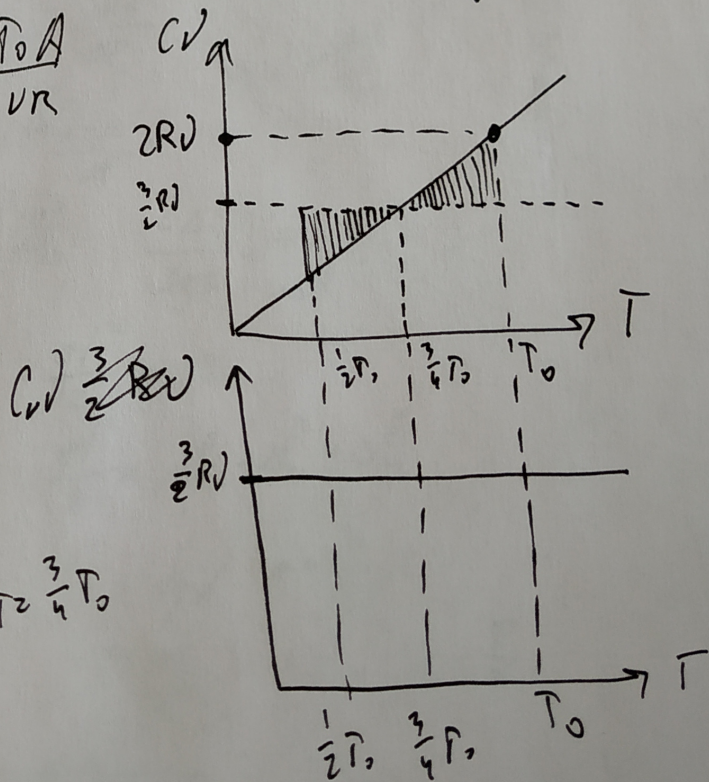 T₀A
νR
Cν
2Rν
3/2 Rν
T
1/2 T₀ 3/4 T₀ T₀
Cᵥν 3/2
3/2 Rν
T = 3/4 T₀
T
1/2 T₀ 3/4 T₀ T₀